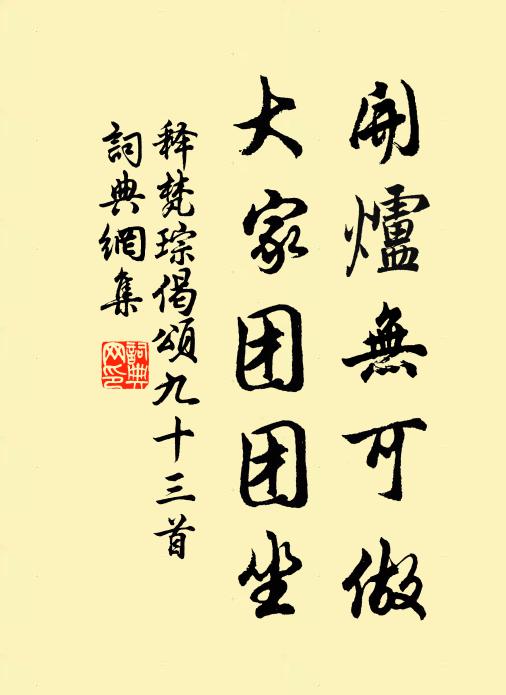 開爐無可做
大家团团坐
释梵琮偈頌九十三首
詞典網集
詞典網印